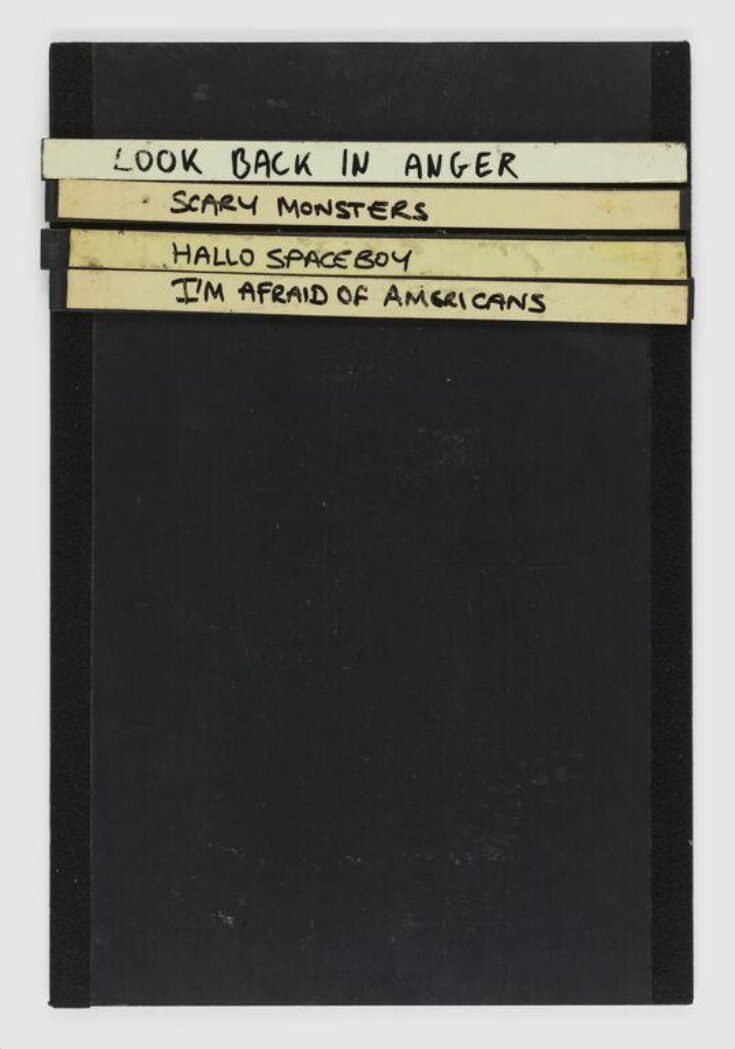 LOOK BACK IN ANGER
SCARY MONSTERS
HALLO SPACEBOY
I'M AFRAID OF AMERICANS